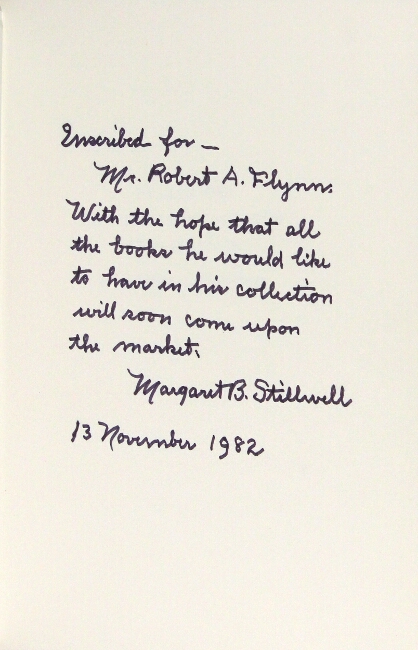 Inscribed for —
Mr. Robert A. Flynn.
With the hope that all
the books he would like
to have in his collection
will soon come upon
the market.
Margaret B. Stillwell
13 November 1982